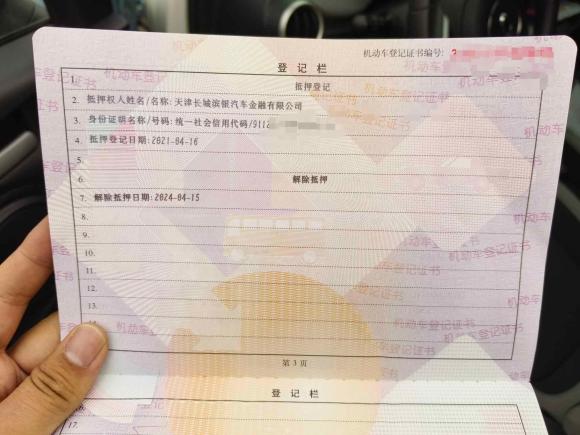 机动车登记证书编号:
登 记 栏
1. 抵押登记
2. 抵押权人姓名/名称:天津长城滨银汽车金融有限公司
3. 身份证明名称/号码:统一社会信用代码/9112
4. 抵押登记日期:2021-04-16
5.
6. 解除抵押
7. 解除抵押日期:2024-04-15
8.
9.
10.
11.
12.
13.
第 3 页
登 记 栏
16.
17.
机动车登记证书
机动车登记证书
机动车登记证书
机动车登记证书
机动车登记证书
机动车登记证书